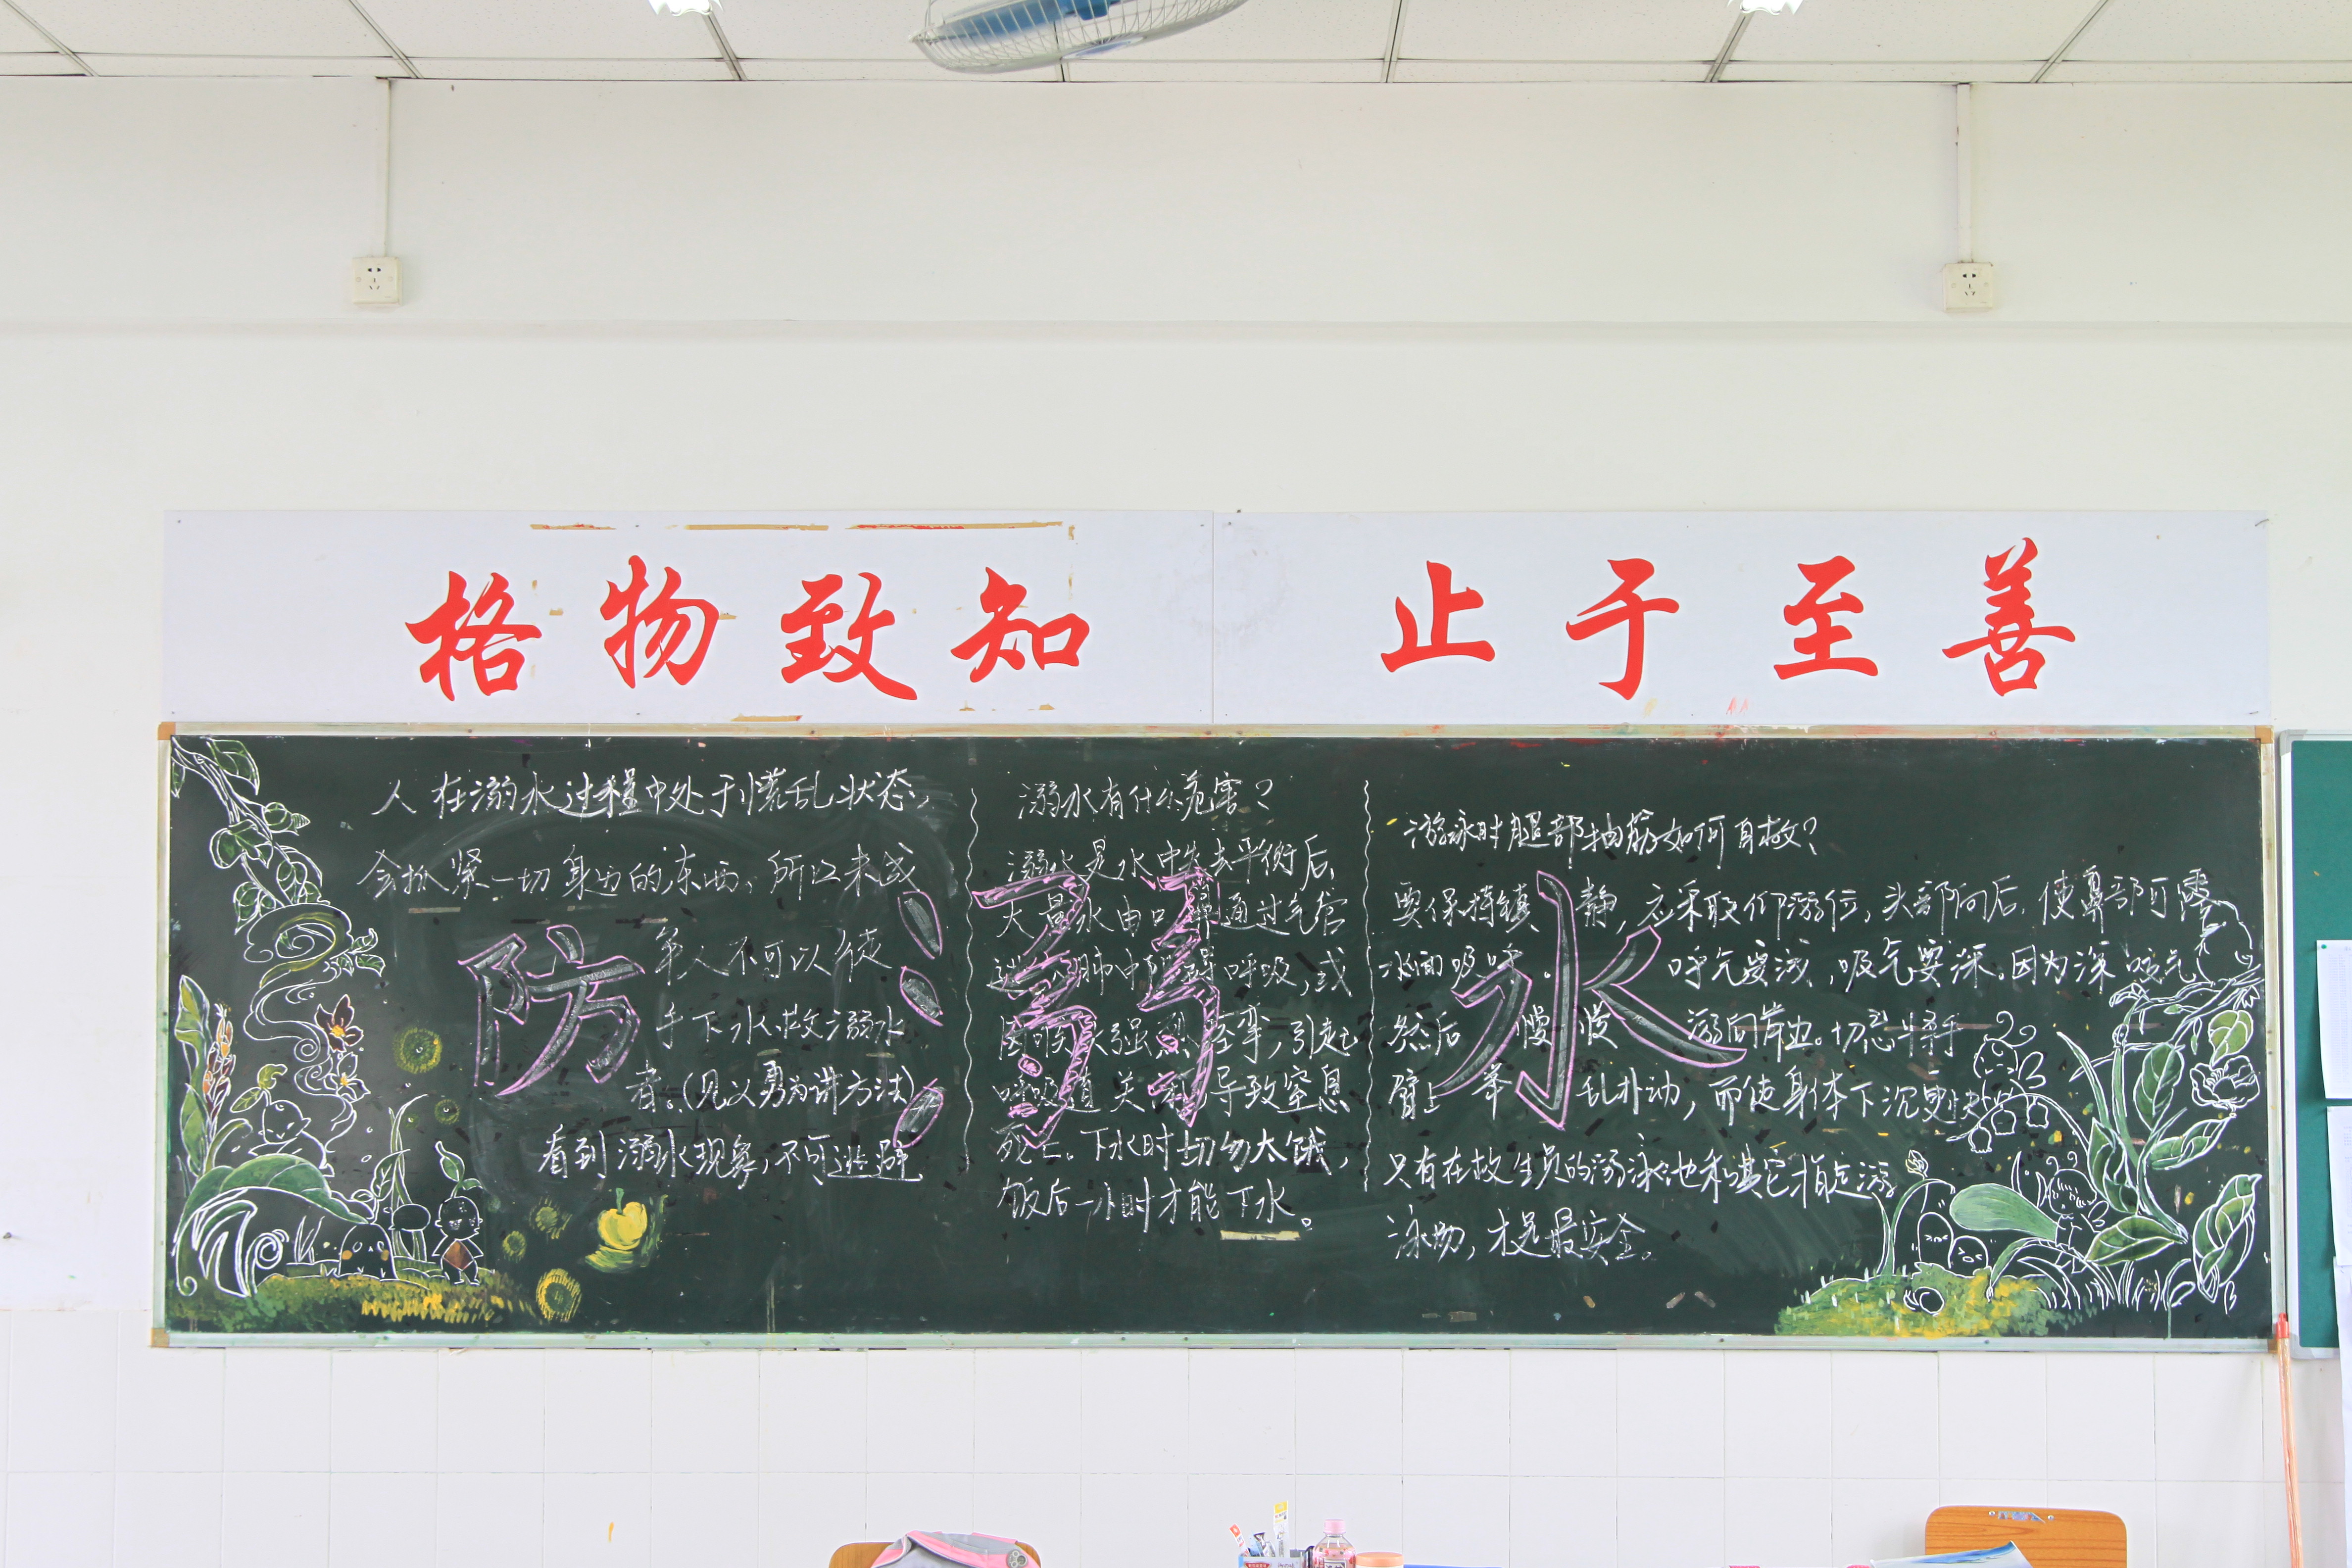 格物致知 止于至善
防溺水
人在溺水过程中处于慌乱状态,
会抓紧一切身边的东西,所以未成
年人不可以徒
手下水救溺水
者。(见义勇为讲方法)
看到溺水现象,不可逃避
溺水有什么危害?
溺水是水中失去平衡后,
大量水由口鼻通过气管
进入肺中阻碍呼吸,或
因喉头强烈痉挛,引起
呼吸道关闭导致窒息
死亡。下水时切勿太饿,
饭后一小时才能下水。
游泳时腿部抽筋如何自救?
要保持镇静,应采取仰游位,头部向后,使鼻部可露
水面呼吸.呼气要浅,吸气要深。因为深吸气
然后慢慢游向岸边。切忌将手
臂上举乱扑动,而使身体下沉更快
只有在救生员的游泳池和其它指定游
泳场,才是最安全。